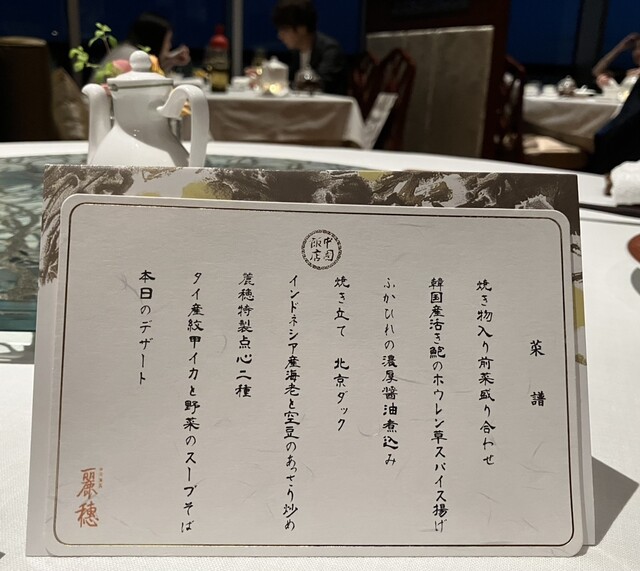 菜譜
焼き物入り前菜盛り合わせ
韓国産活き鮑のホウレン草スパイス揚げ
ふかひれの濃厚醤油煮込み
焼き立て 北京ダック
インドネシア産海老と空豆のあっさり炒め
麗穂特製点心二種
タイ産紋甲イカと野菜のスープそば
本日のデザート
中国飯店
麗穂